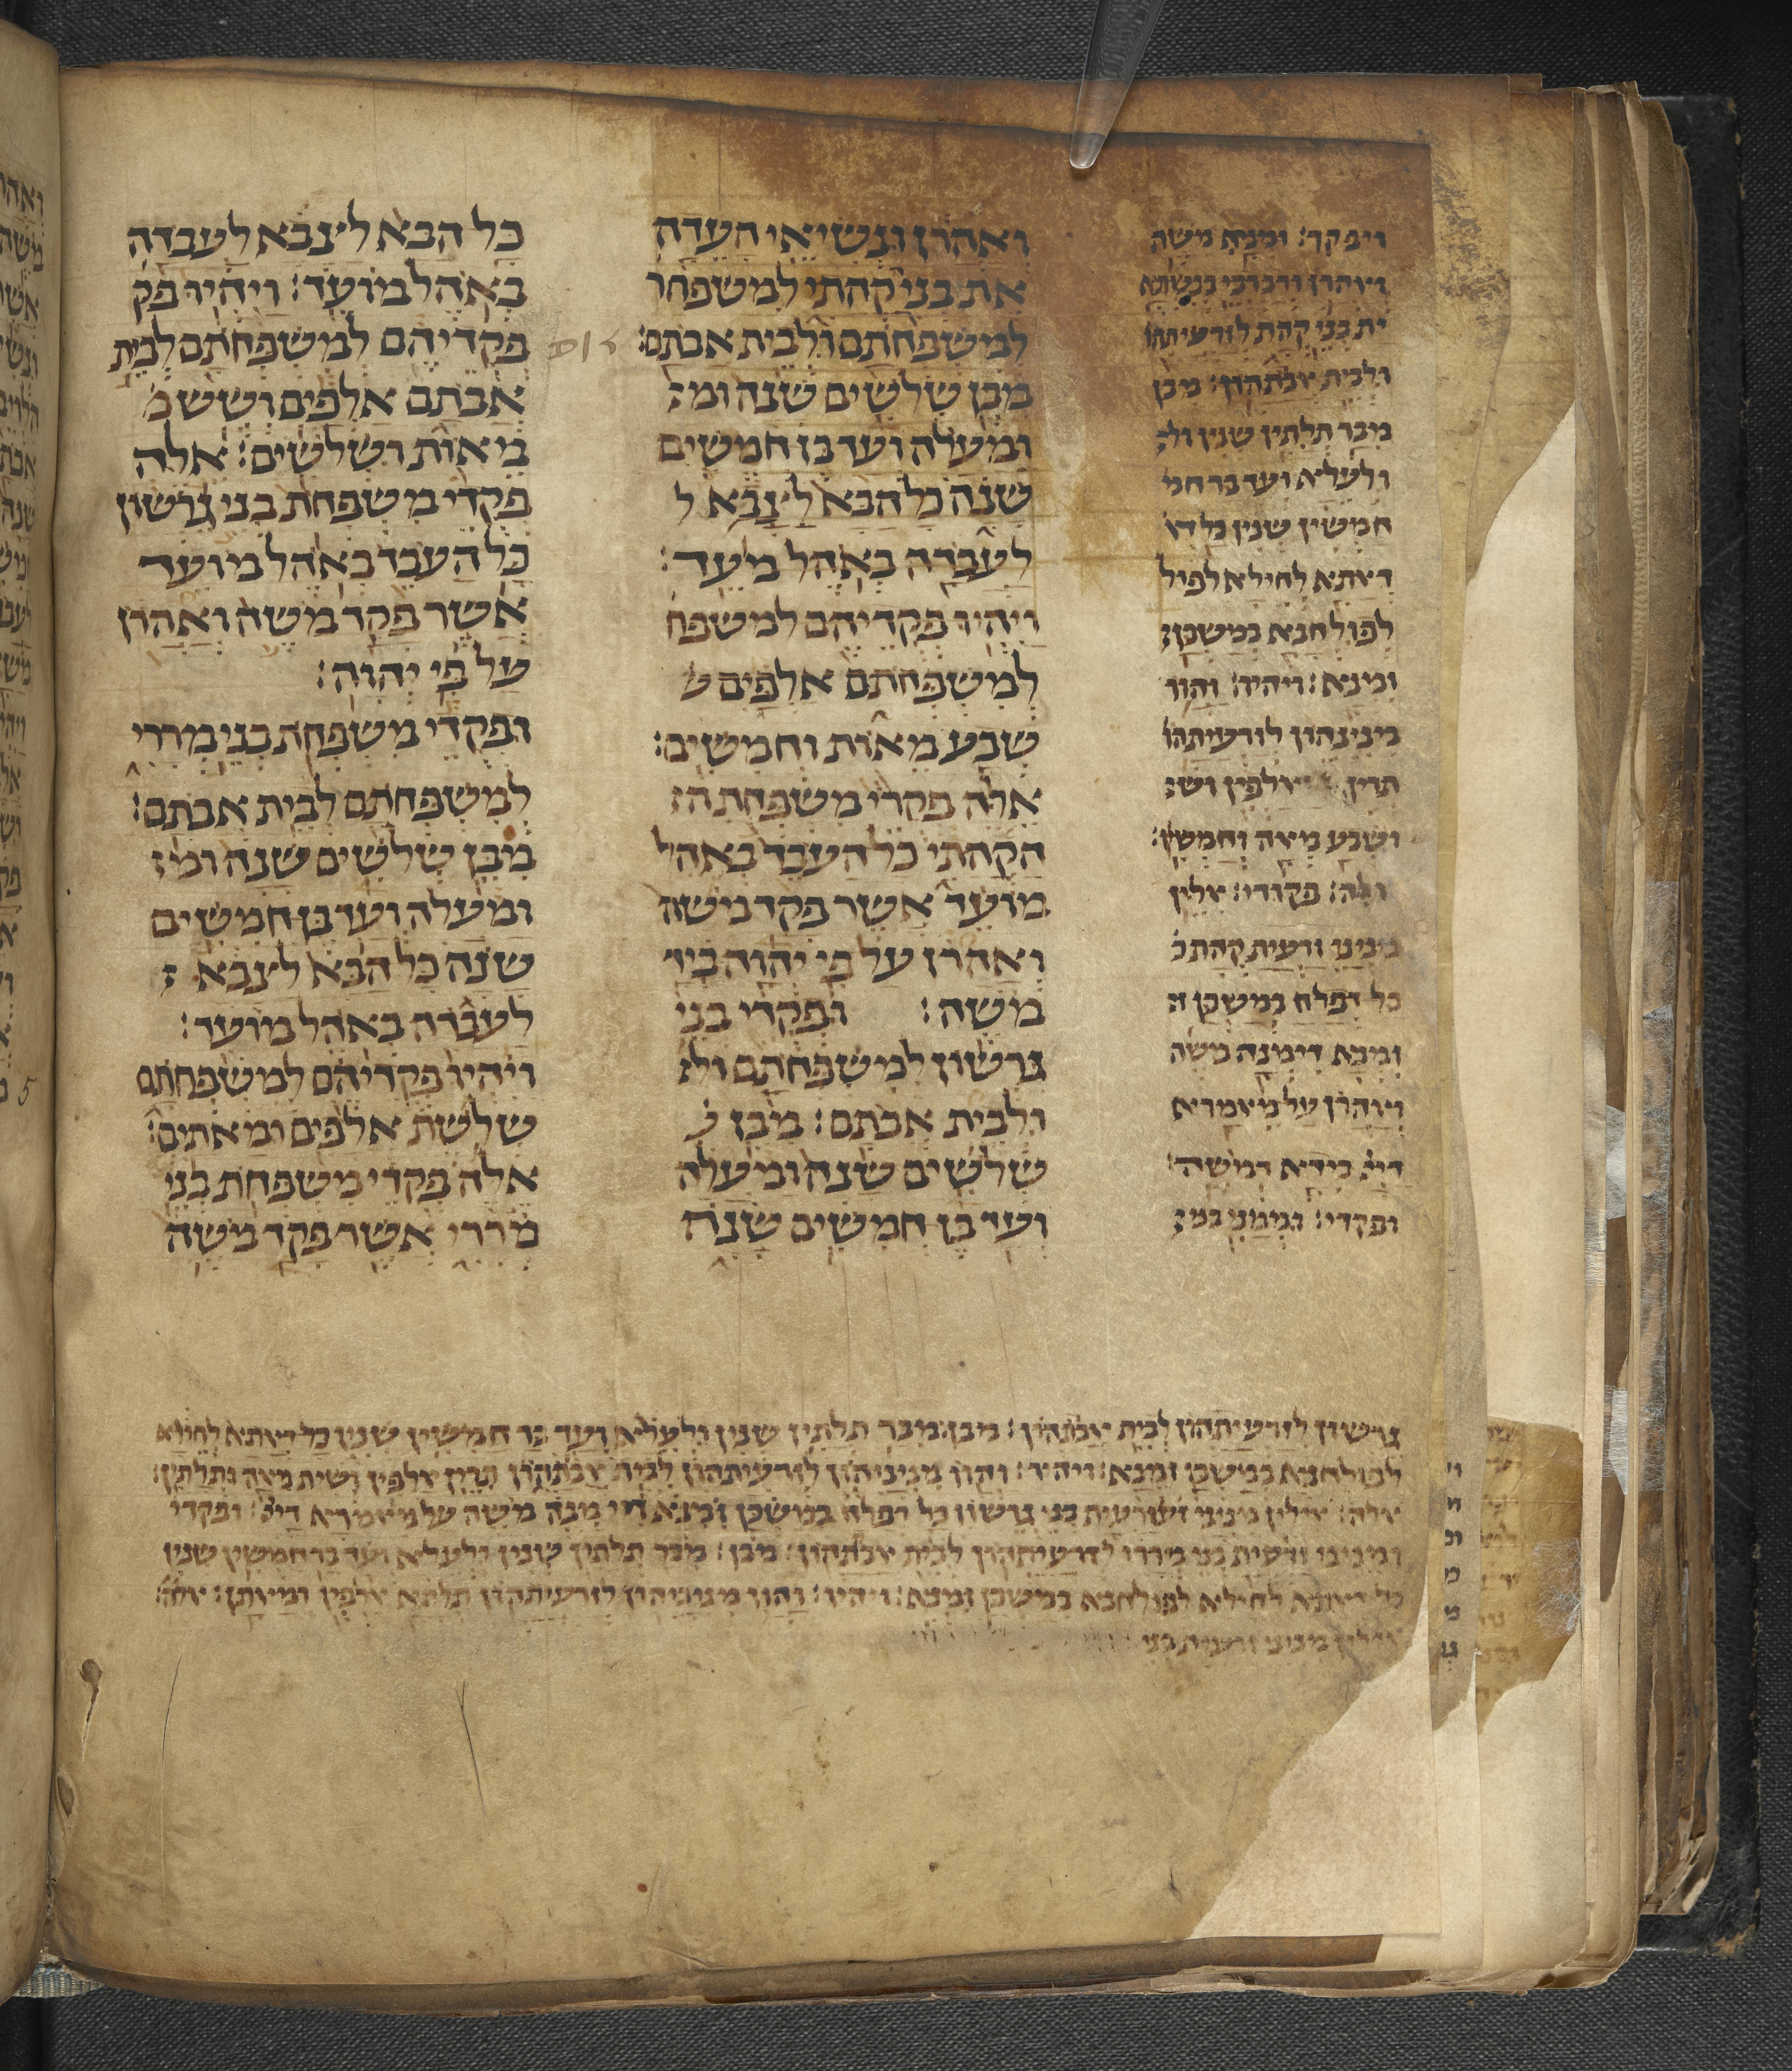 ויפקד׃ ומנא משה
ית בני קהת לזרעיתהו
ולבית אבהתהון׃ מבן
מבר תלתין שנין ול
ולעלא ועד בר חמ
חמשין שנין כל ד
דאתא לחילא לפול
לפולחנא במשכן
זמנא׃ ויהיו׃ והוו
מנינהון לזרעיתהו
תרין אלפין וש
ושבע מאה וחמשין׃
אלה׃ פקודי׃ אלין
מניני זרעית קהת כ
כל דפלח במשכן ז
זמנא דימנה משה
ואהרן על מימרא
דייי בידא דמשה׃
ופקדי׃
ואהרן ונשיאי העדה
את בני קהתי למשפחו
למשפחתם ולבית אבתם׃
מבן שלשים שנה ומ
ומעלה ועד בן חמשים
שנה כל הבא לצבא ל
לעבדה באהל מעד׃
ויהיו פקדיהם למשפח
למשפחתם אלפים ש
שבע מאות וחמשים׃
אלה פקדי משפחת ה
הקהתי כל העבד באהל
מועד אשר פקד משה
ואהרן על פי יהוה ביד
משה׃ ופקדי בני
גרשון למשפחתם ול
ולבית אבתם׃ מבן ש
שלשים שנה ומעלה
ועד בן חמשים שנה
כל הבא לצבא לעבדה
באהל מועד׃ ויהיו פק
פקדיהם למשפחתם לבית
אבתם אלפים ושש מ
מאות ושלשים׃ אלה
פקדי משפחת בני גרשון
כל העבד באהל מועד
אשר פקד משה ואהרן
על פי יהוה׃
ופקדי משפחת בני מררי
למשפחתם לבית אבתם׃
מבן שלשים שנה ומ
ומעלה ועד בן חמשים
שנה כל הבא לצבא ל
לעבדה באהל מועד׃
ויהיו פקדיהם למשפחתם
שלשת אלפים ומאתים׃
אלה פקדי משפחת בני
מררי אשר פקד משה
גרשון לזרעיתהון לבית אבהתהון׃ מבן׃ מבר תלתין שנין ולעלא ועד בר חמשין שנין כל דאתא לחילא
לפולחנא במשכן זמנא׃ ויהיו׃ והוו מניניהון לזרעיתהון לבית אבהתהון תרין אלפין ושית מאה ותלתין׃
אלה׃ אלין מניני זרעית בני גרשון כל דפלח במשכן זמנא די מנה משה על מימרא דייי׃ ופקדי
ומניני זרעית בני מררי לזרעיתהון לבית אבהתהון׃ מבן׃ מבר תלתין שנין ולעלא ועד בר חמשין שנין
כל דאתא לחילא לפולחנא במשכן זמנא׃ ויהיו׃ והוו מניניהון לזרעיתהון תלתא אלפין ומאתן׃ אלה׃
אלין מניני זרעית בני